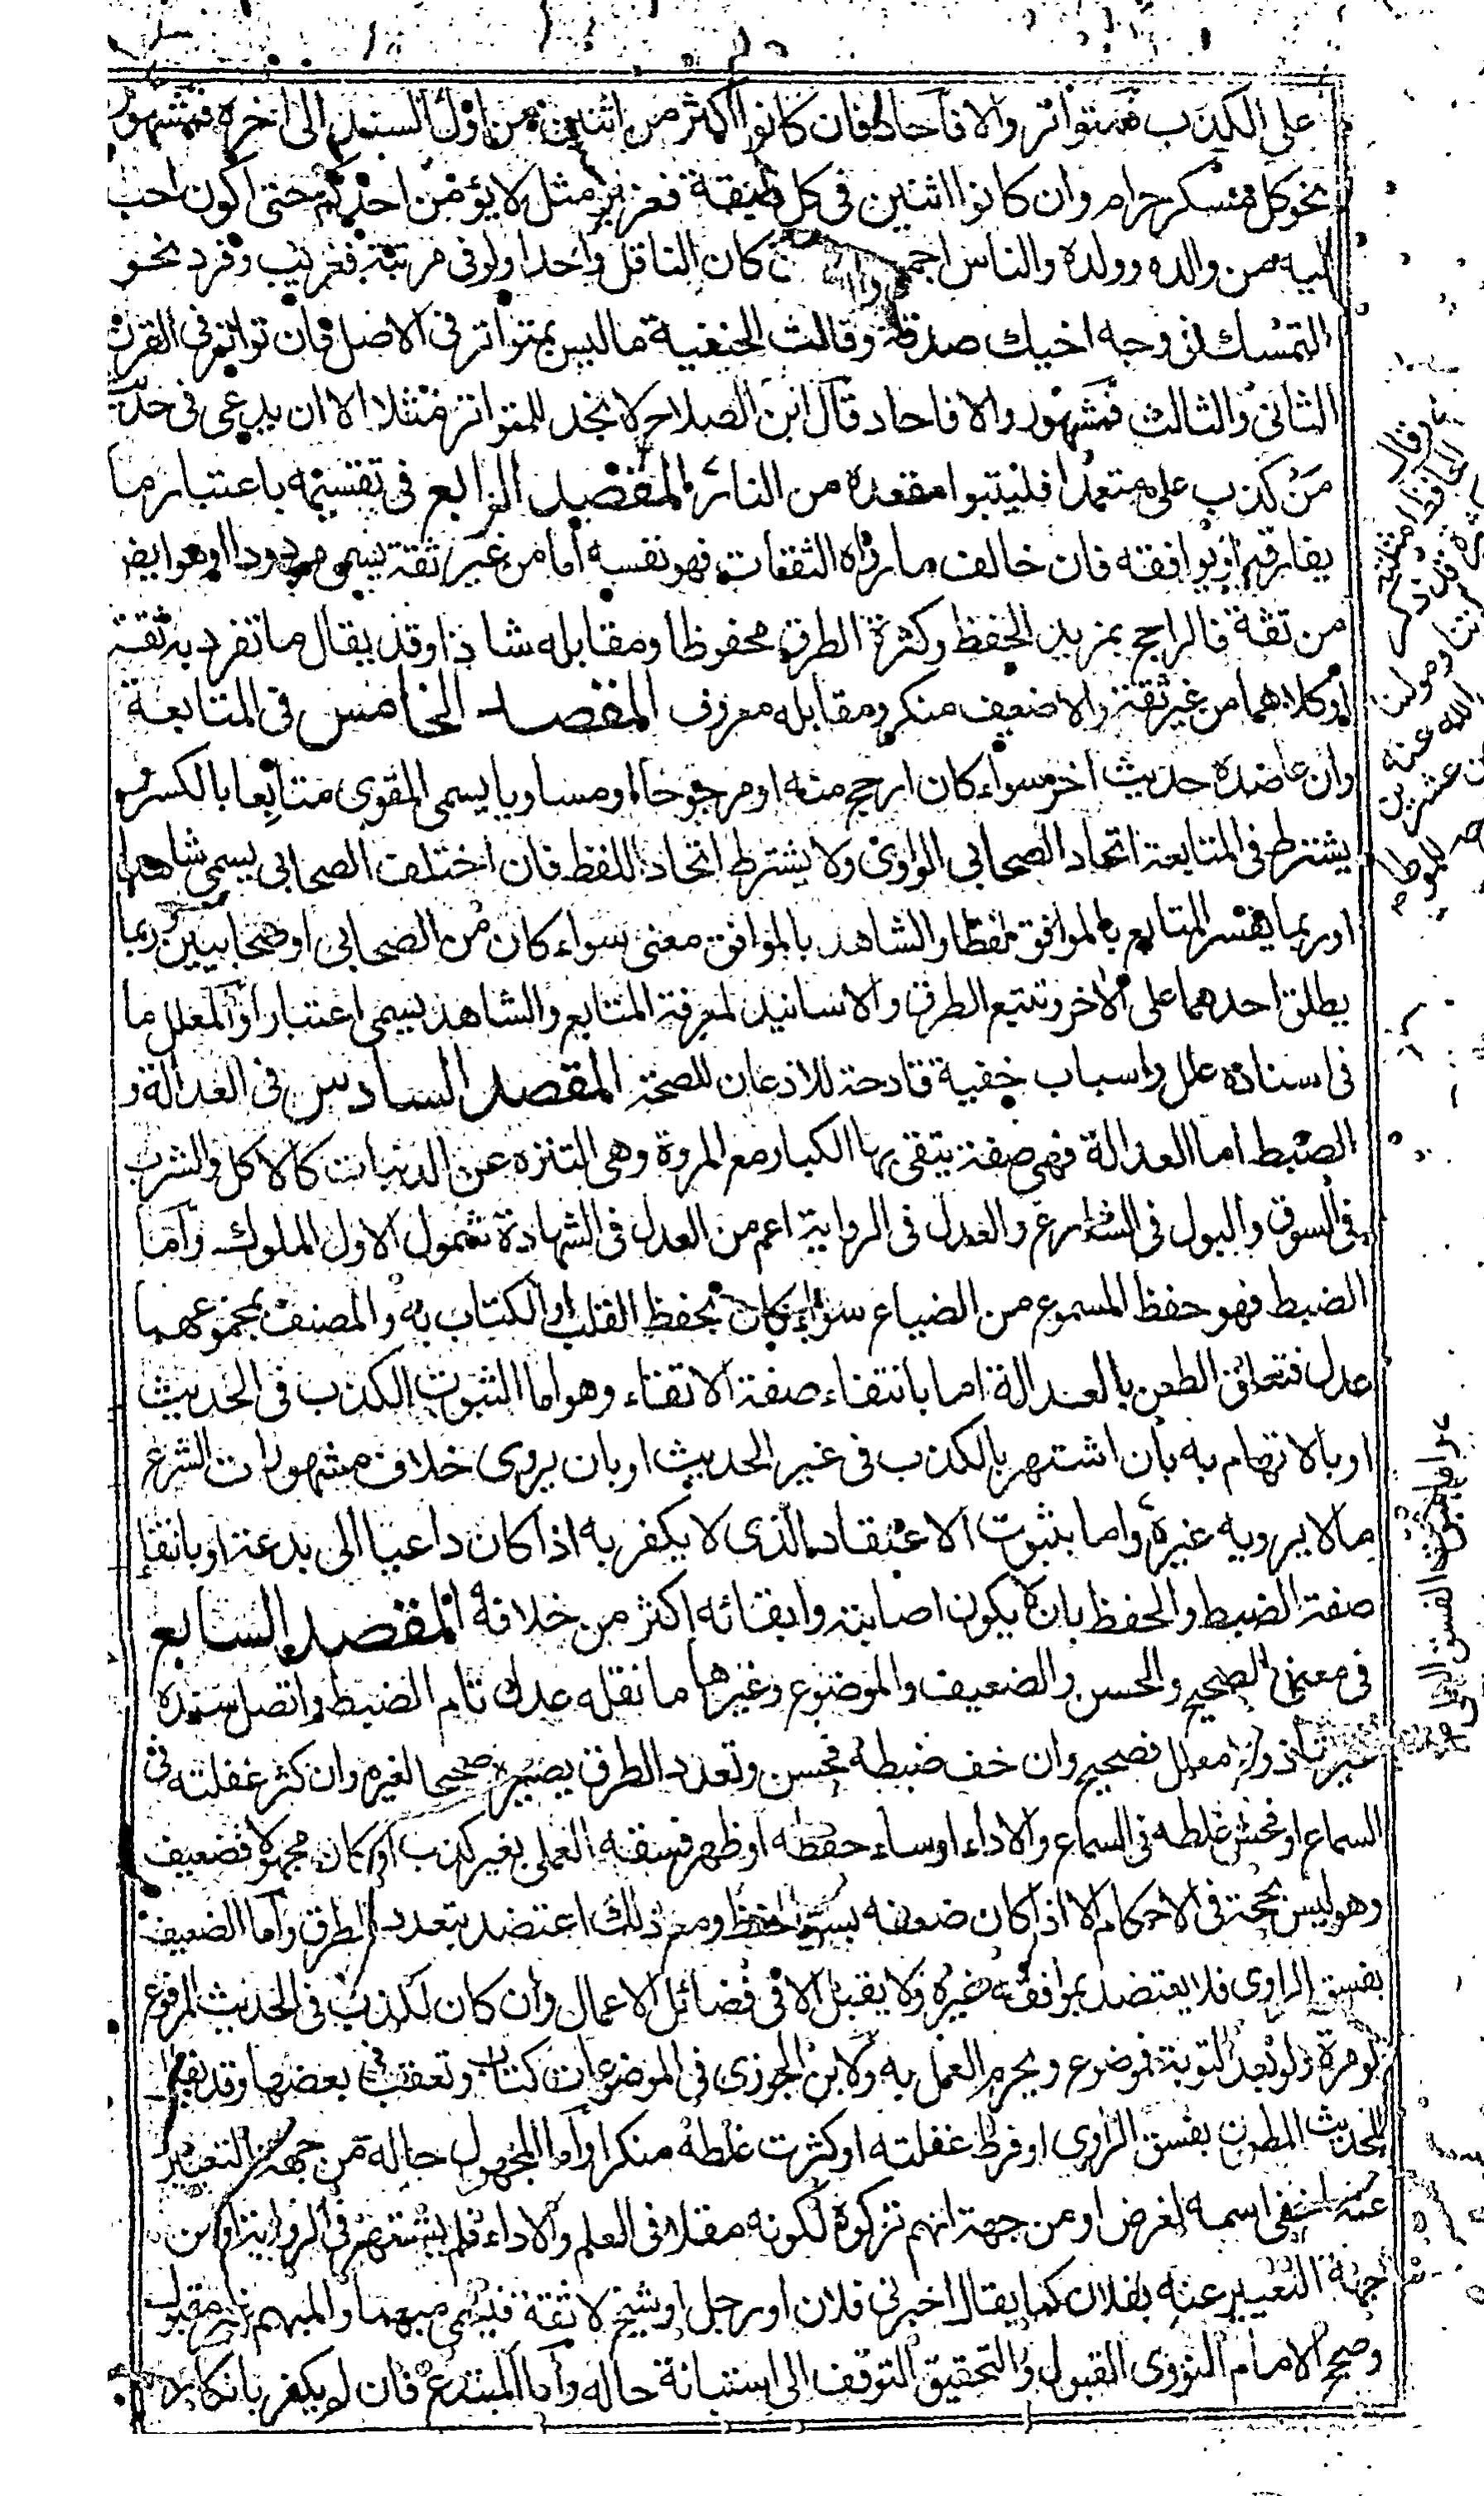 على الكذب فمتواتر والا فآحاد فان كانوا اكثر من اثنين من اول السند الى اخره فمشهور
نحو كل مسكر حرام وان كانوا اثنين في كل طبقة فعزيز مثل لا يؤمن احدكم حتى اكون احب
اليه من والده وولده والناس كان الناقل واحدا ولو في مرتبة فغريب وفرد نحو
التمسك في وجه اخيك صدقة وقالت الحنفية ما ليس بمتواتر في الاصل فان تواتر في القرن
الثاني والثالث فمشهور والا فاحاد قال ابن الصلاح لا نجد للمتواتر مثلا الا ان يدعى في حديث
من كذب علي متعمدا فليتبوا مقعده من النار المقصد الرابع في تقسيمه باعتبار ما
يفارقه او يوافقه فان خالف ما رواه الثقات فهو نفسه اما من غير ثقة يسمى مردودا او هو ايض
من ثقة فالراجح بمزيد الحفظ وكثرة الطرق محفوظا ومقابله شاذا وقد يقال ما تفرد به ثقة
او كلاهما من غير ثقة والاضعف منكر ومقابله معروف المقصد الخامس في المتابعة
وان عاضده حديث اخر سواء كان ارجح منه او مرجوحا او مساويا يسمى المقوى متابعا بالكسر و
يشترط في المتابعة اتحاد الصحابي الراوي ولا يشترط اتحاد اللفظ فان اختلف الصحابي يسمى شاهدا
او ربما يفسر المتابع بالموافق لفظا والشاهد بالموافق معنى سواء كان من الصحابي او صحابيين ربما
يطلق احدهما على الاخر وتتبع الطرق والاسانيد لمعرفة المتابع والشاهد يسمى اعتبارا والمعلل ما
في اسناده علل واسباب خفية قادحة للاذعان للصحة المقصد السادس في العدالة و
الضبط اما العدالة فهي صفة يتقى بها الكبار مع المروة وهي التنزه عن الدنيات كالاكل والشرب
في السوق والبول في الشارع والعدل في الرواية اعم من العدل في الشهادة شمول الاول المملوك واما
الضبط فهو حفظ المسموع من الضياع سواء كان بحفظ القلب او الكتاب به والمصنف بمجموعهما
عدل فتعلق الطعن بالعدالة اما بانتفاء صفة الاتقاء وهو اما الثبوت الكذب في الحديث
او بالاتهام به بان اشتهر بالكذب في غير الحديث او بان يروى خلاف مشهورات الشرع
ما لا يرويه غيره واما بثبوت الاعتقاد الذي لا يكفر به اذا كان داعيا الى بدعة او بانتفاء
صفة الضبط والحفظ بان لا يكون اصابته وايقائه اكثر من خلافه المقصد السابع
في معنى الصحيح والحسن والضعيف والموضوع وغيرها ما نقله عدل تام الضبط واتصل سنده
غير شاذ ولا معلل فصحيح وان خف ضبطه فحسن وتعدد الطرق يصيره صحيحا لغيره وان كثر غفلته في
السماع او فحش غلطه في السماع والاداء او ساء حفظه او ظهر فسقه العملي بغير كذب او كان مجهولا فضعيف
وهو ليس بحجة في الاحكام الا اذا كان ضعفه بسوء الحفظ ومع ذلك اعتضد بتعدد الطرق واما الضعيف
بفسق الراوي فلا يعتضد بموافقة غيره ولا يقبل الا في فضائل الاعمال وان كان لكذب في الحديث المرفوع
لو مرة ولو بعد التوبة فموضوع ويحرم العمل به ولابن الجوزي في الموضوعات كتاب وتعقب في بعضها وقد
الحديث المطعون بفسق الراوي او فرط غفلته او كثرت غلطه منكرا واما المجهول حاله من جهة التعبير
عنه اسمه لغرض او من جهة انهم تركوه لكونه مقلا في العلم والاداء فلم يشتهر في الرواية او من
جهة التعبير عنه بفلان كما يقال اخبرني فلان او رجل او شيخ لا ثقة فيسمى مبهما والمبهم غير مقبول
وصحح الامام النووي القبول والتحقيق التوقف الى استبانة حاله واما المبتدع فان لم يكفر بانكار